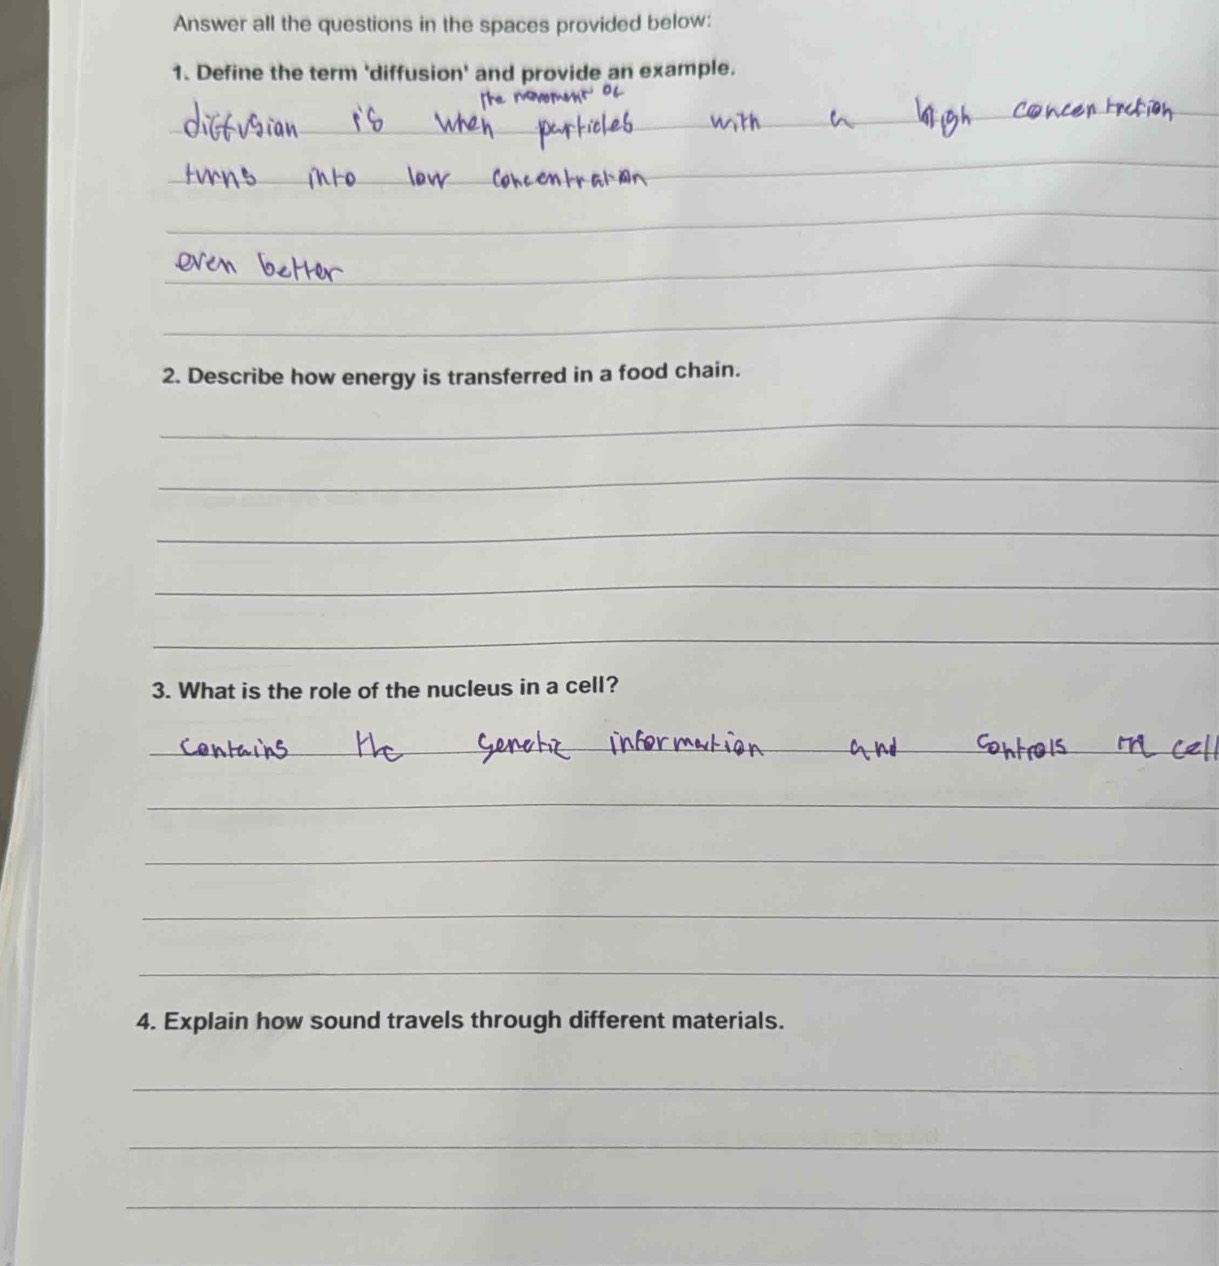 Answer all the questions in the spaces provided below:
1. Define the term 'diffusion' and provide an example.
the movement of
diffusion is when particles with a high concentration
turns into low concentration
even better
2. Describe how energy is transferred in a food chain.
3. What is the role of the nucleus in a cell?
contains the genetic information and controls cell
4. Explain how sound travels through different materials.